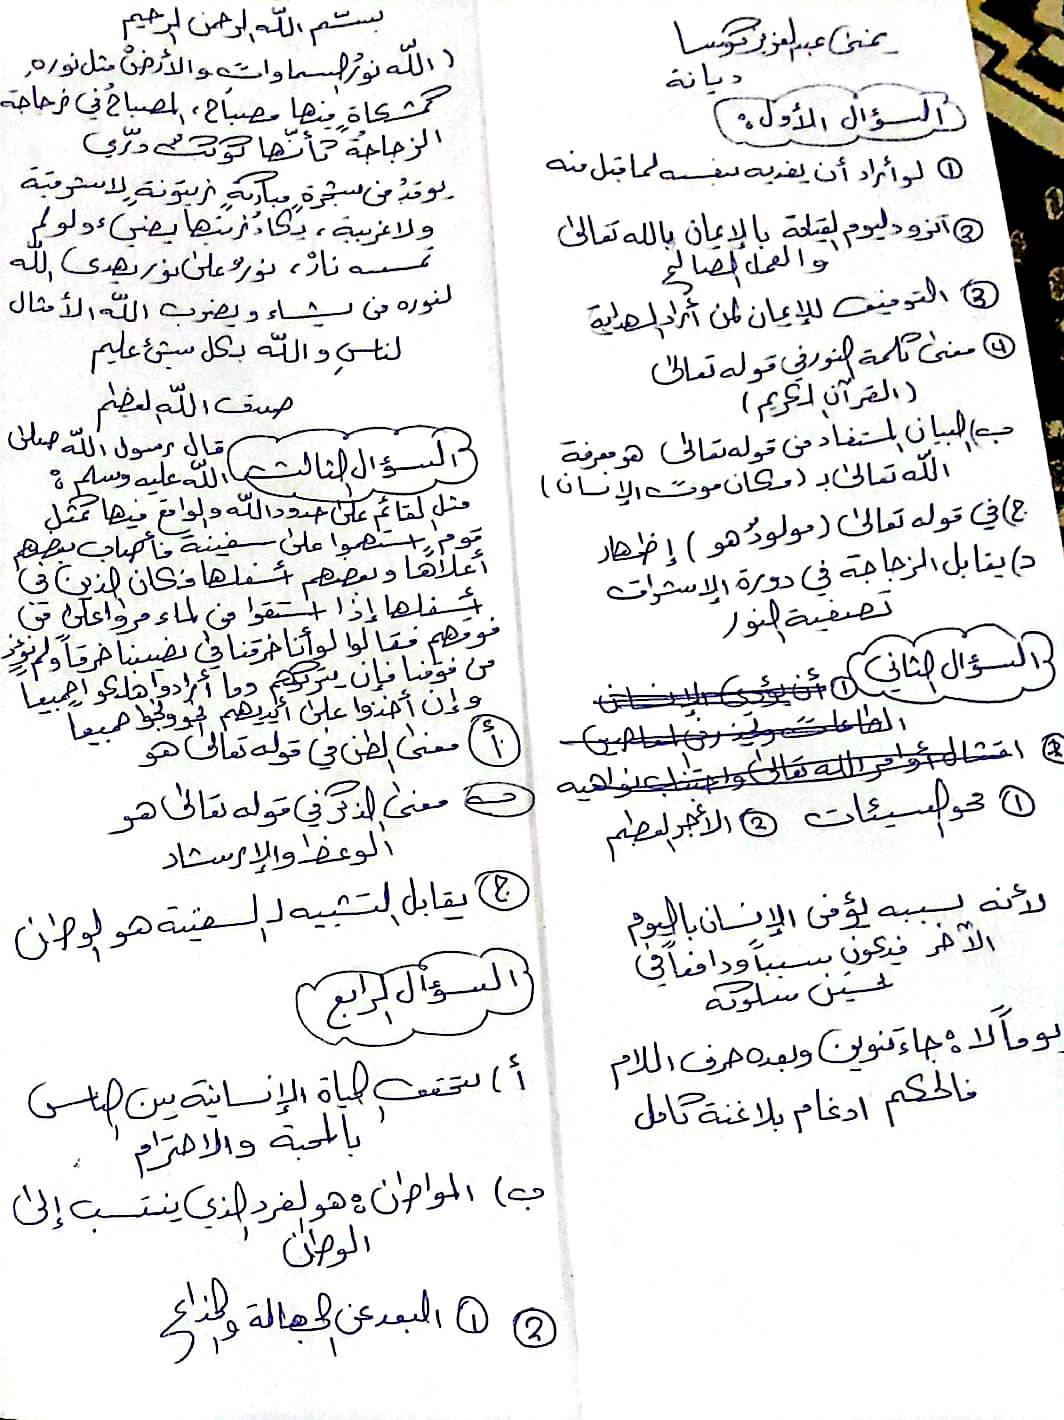 يمنى عبد العزيز كوسا
ديانة
السؤال الأول:
① لو أراد أن يفديه بنفسه لما قبل منه
② أتزود ليوم القيامة بالإيمان بالله تعالى
والعمل الصالح
③ التوفيق للإيمان لمن أراد الهداية
④ معنى كلمة النور في قوله تعالى
(القرآن الكريم)
ب) البيان المستفاد من قوله تعالى هو معرفة
الله تعالى بـ (مكان موت الإنسان)
ج) في قوله تعالى (مولودٌ هو) إظهار
د) يقابل الزجاجة في دورة الإشراق
تصفية النور
السؤال الثاني
① أن يؤدي الإنسان
الطاعات و في المعاصي
② امتثال أوامر الله تعالى واجتناب نواهيه
① محو السيئات ② الأجر العظيم
لأنه بسببه يؤمن الإنسان باليوم
الآخر فيكون سبباً ودافعاً في
تحسين سلوكه
يوماً لا: جاء تنوين وبعده حرف اللام
فالحكم ادغام بلاغنة كامل
بسم الله الرحمن الرحيم
(الله نورُ السماواتِ والأرضْ مثل نوره
كمشكاةٍ فيها مصباح، المصباحُ في زجاجة
الزجاجةُ كأنّها كوكبٌ درّي
يوقدُ من شجرةٍ مباركةٍ زيتونةٍ لا شرقية
ولا غربية، يكادُ زيتها يضيء ولو لم
تمسسه نارْ، نورٌ على نور يهدي الله
لنوره من يشاء ويضرب الله الأمثال
لناسِ والله بكل شيء عليم
صدق الله العظيم
السؤال الثالث قال رسول الله صلى
الله عليه وسلم:
مثل القائم على حدود الله والواقع فيها كمثل
قوم استهموا على سفينة فأصاب بعضهم
أعلاها وبعضهم أسفلها فكان الذين في
أسفلها إذا استقوا من الماء مروا على من
فوقهم فقالوا لو أنا خرقنا في نصيبنا خرقاً ولم نؤذ
من فوقنا فإن يتركهم وما أرادوا هلكوا جميعاً
وإن أخذوا على أيديهم نجوا ونجوا جميعاً
أ معنى الظن في قوله تعالى هو
ب معنى الذكر في قوله تعالى هو
الوعظ والإرشاد
ج يقابل التشبيه لـ السفينة هو الوطن
السؤال الرابع
أ) لتحقق الحياة الإنسانية بين الناس
بالمحبة والاحترام
ب) المواطن: هو الفرد الذي ينتسب إلى
الوطن
② ① البعد عن الجهالة والخداع